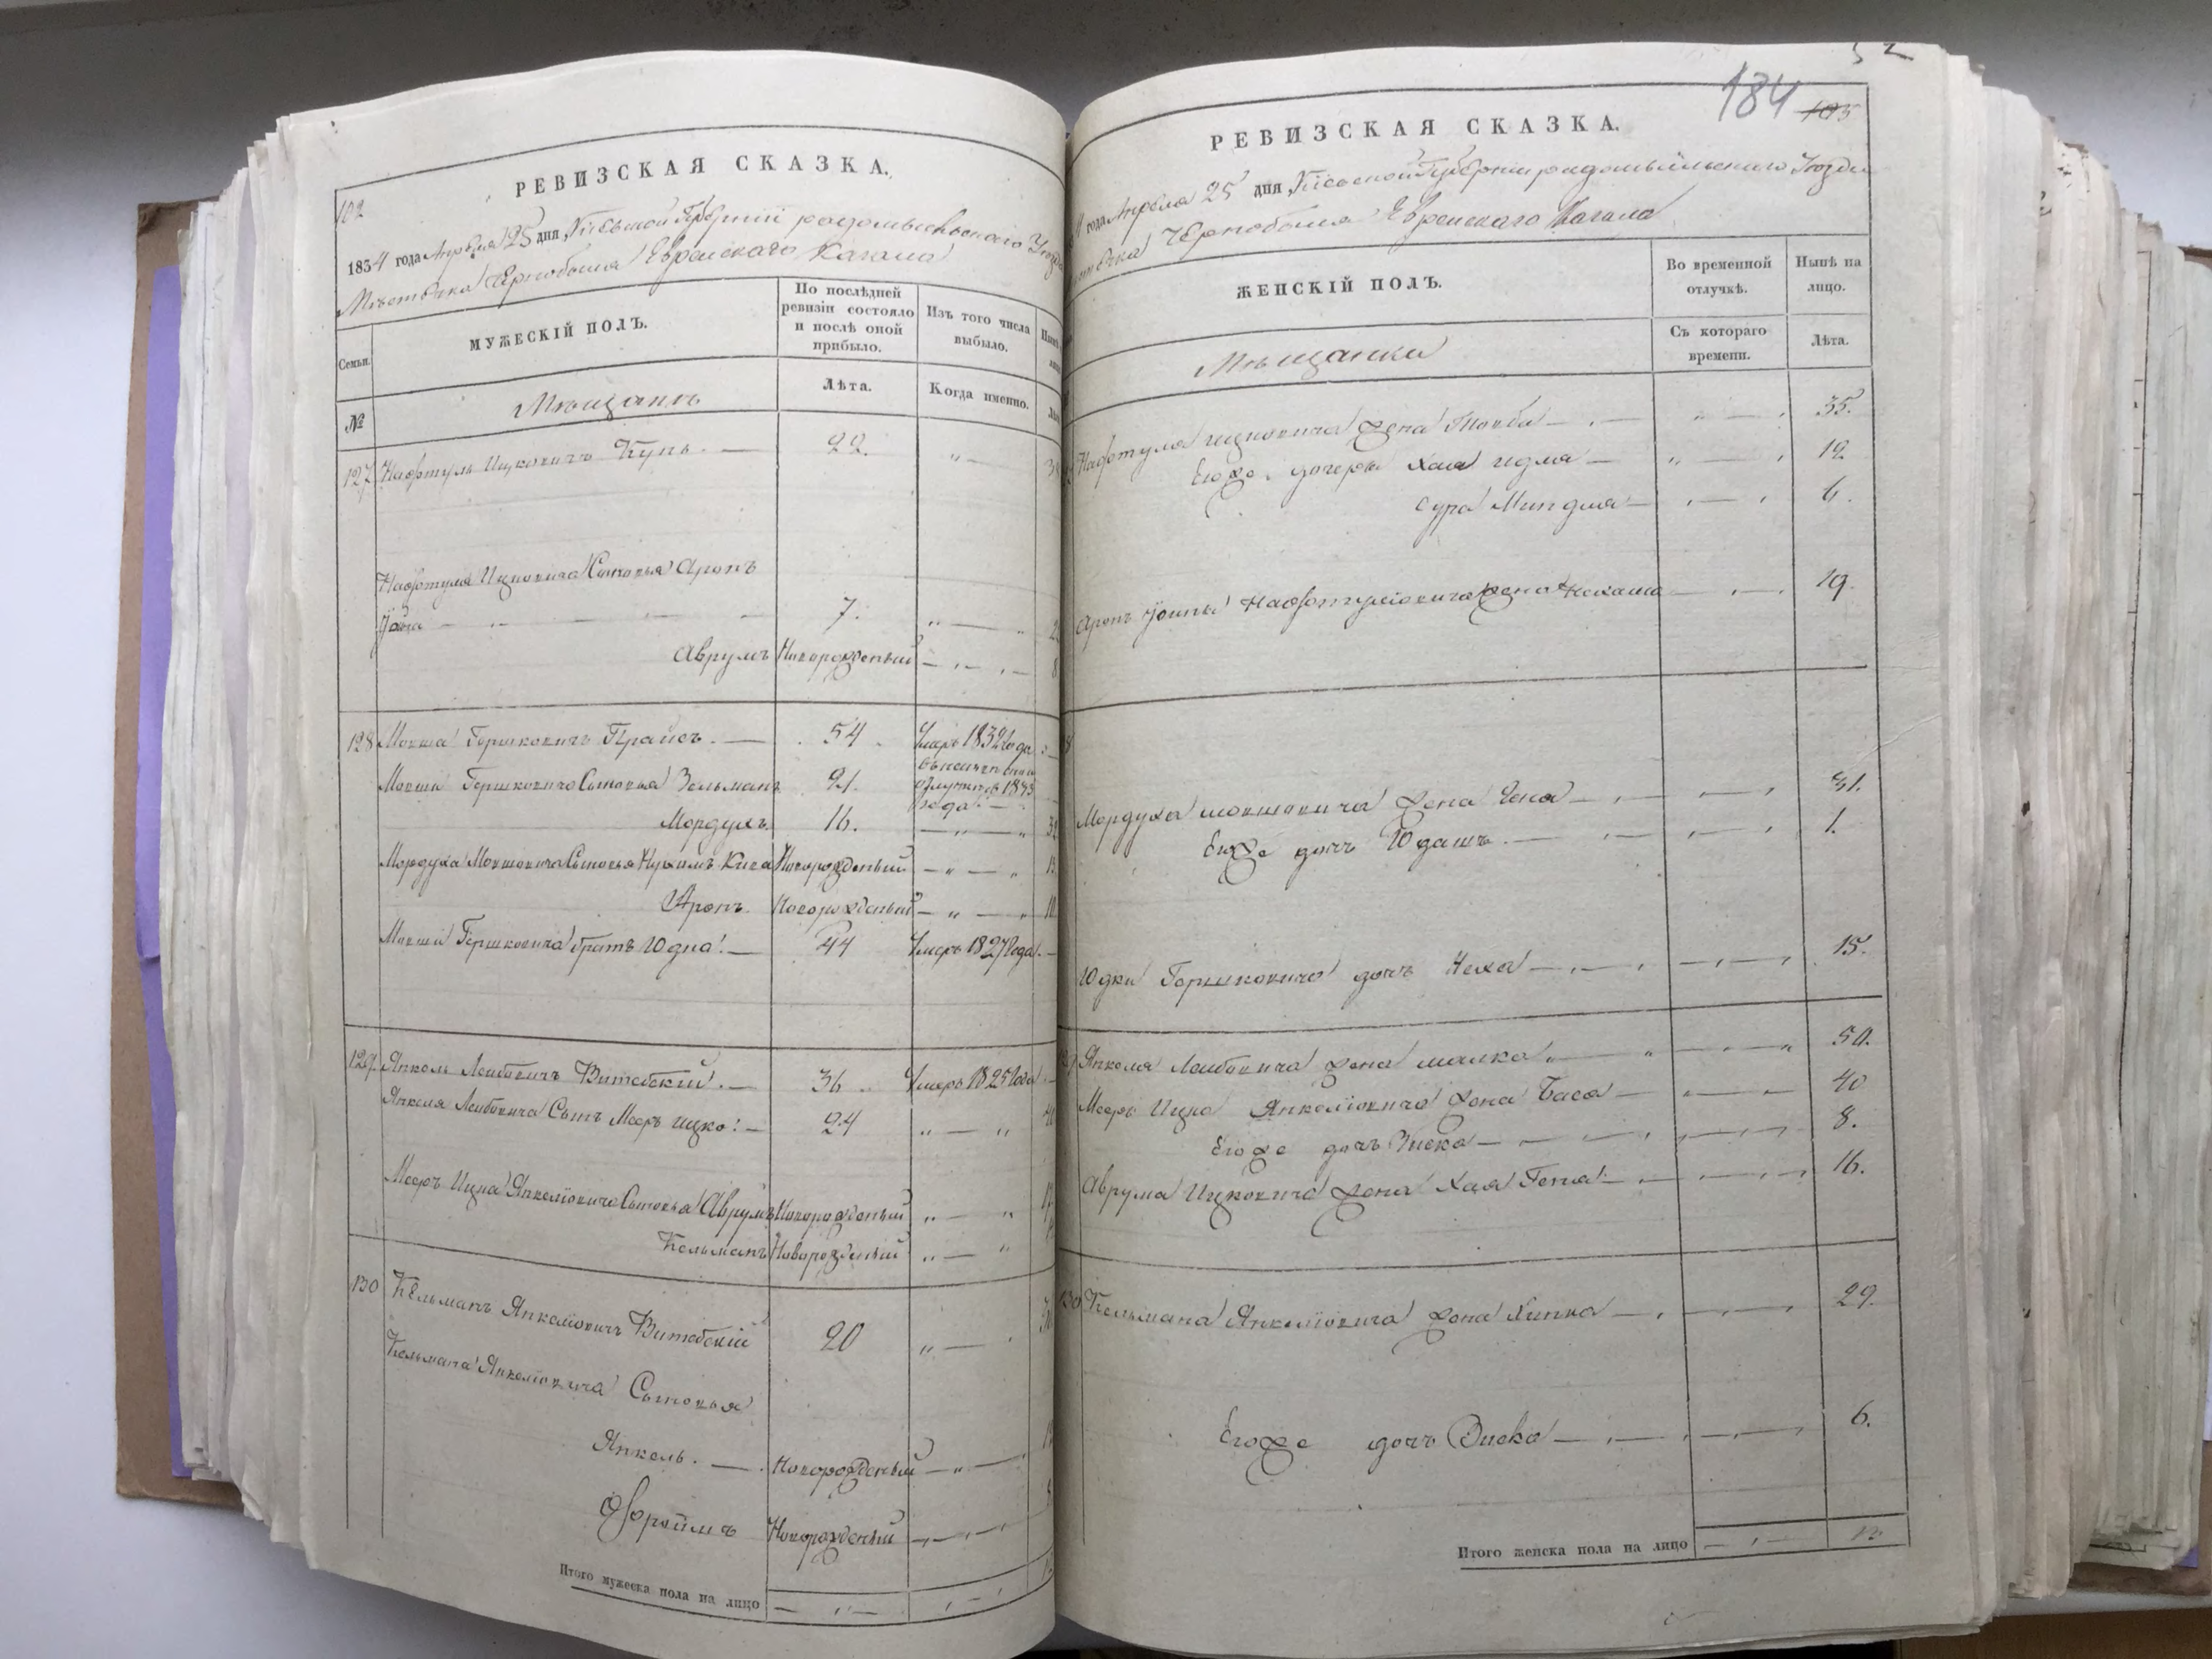 102
РЕВИЗСКАЯ СКАЗКА.
1834 года Апреля 25 дня Кіевской Губерніи радомысльскаго Уезда
Мѣстечка Чернобыля Еврейскаго Кагала
Семьи.
МУЖЕСКІЙ ПОЛЪ.
По послѣдней ревизіи состояло и послѣ оной прибыло.
Изъ того числа выбыло.
№
Мѣщанъ
Лѣта.
Когда именно.
127 Нафтуль Ицковичъ Купъ. — 22. „ —
Нафтуля Ицковича Сыновья Аронъ
Іона — 7. „ — „
Аврумъ Новорожденый — „ —
128 Мовша Гершковичъ Прайсъ. — 54 Умеръ 1832 года
Мовши Гершковича Сыновья Зельманъ 21.
года
Мордухъ. 16. — „ — „
Мордуха Мовшовича Сыновья Нухимъ Кива Новорожденый — „ — „
Аронъ. Новорожденый — „ — „
Мовши Гершковича братъ Юдка. — 44 Умеръ 1827 года
129. Янкель Лейбовичъ Витебскій. — 36 Умеръ 1825 года
Янкеля Лейбовича Сынъ Мееръ Ицко. — 24 „ — „
Мееръ Ицка Янкеліовича Сыновья Аврумъ Новорожденый „ — „
Кельманъ Новорожденый „ — „
130 Кельманъ Янкеліовичъ Витебскій 20 „ —
Кельмана Янкеліовича Сыновья
Янкель. — Новорожденый — „ —
Эфроимъ Новорожденый
Итого мужеска пола на лицо
184 105
РЕВИЗСКАЯ СКАЗКА.
года Апреля 25 дня Кіевской Губерніи радомысльскаго Уезда
Чернобыля Еврейскаго Кагала
ЖЕНСКІЙ ПОЛЪ.
Во временной отлучкѣ.
Нынѣ на лицо.
Мѣщанки
Съ котораго времени.
Лѣта.
Нафтуля Ицковича жена Товба — 35.
Егоже дочери Хая Идля — 12
Сура Миндля — 6.
Аронъ Іонны Нафтуліовича жена Нехама 19.
Мордуха Мовшовича жена Чена — 31.
Егоже дочь Юдашъ. — 1.
Юдки Гершковича дочь Неха — 15.
Янкеля Лейбовича жена малка — 50.
Мееръ Ицка Янкеліовича жена Бася — 40
Егоже дочь Риска — 8.
Аврума Ицковича жена Хая Геня — 16.
Кельмана Янкеліовича жена Хинка — 29.
Егоже дочь Риска — 6.
Итого женска пола на лицо 12